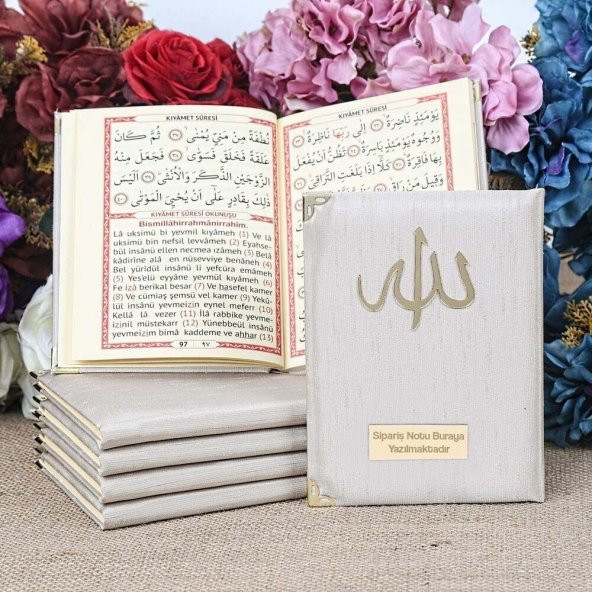 KIYÂMET SÛRESİ
نُطْفَةً مِنْ مَنِيٍّ يُمْنٰىۙ ﴿٣٧﴾ ثُمَّ كَانَ
عَلَقَةً فَخَلَقَ فَسَوّٰىۙ ﴿٣٨﴾ فَجَعَلَ مِنْهُ
الزَّوْجَيْنِ الذَّكَرَ وَالْاُنْثٰىۜ ﴿٣٩﴾ اَلَيْسَ
ذٰلِكَ بِقَادِرٍ عَلٰٓى اَنْ يُحْيِيَ الْمَوْتٰى ﴿٤٠﴾
KIYÂMET SÛRESİ OKUNUŞU
Bismillâhirrahmânirrahîm.
Lâ uksimü bi yevmil kıyâmeh (1) Ve lâ
uksimü bin nefsil levvâmeh (2) Eyahse-
bül insânü ellen necmea ızâmeh (3) Belâ
kâdirîne alâ en nüsevviye benâneh (4)
Bel yürîdül insânü li yefcüra emâmeh
(5) Yes'elü eyyâne yevmül kıyâmeh (6)
Fe izâ berikal besar (7) Ve hasefel kamer
(8) Ve cümiaş şemsü vel kamer (9) Yekû-
lül insânü yevmeizin eynel meferr (10)
Kellâ lâ vezer (11) İlâ rabbike yevme-
izinil müstekarr (12) Yünebbeül insânü
yevmeizim bimâ kaddeme ve ahhar (13)
97 ٩٧
KIYÂMET SÛRESİ
يَوْمَئِذٍ نَاضِرَةٌۙ ﴿٢٢﴾ اِلٰى رَبِّهَا نَاظِرَةٌۚ ﴿٢٣﴾
وَوُجُوهٌ يَوْمَئِذٍ بَاسِرَةٌۙ ﴿٢٤﴾ تَظُنُّ اَنْ يُفْعَلَ
بِهَا فَاقِرَةٌۜ ﴿٢٥﴾ كَلَّٓا اِذَا بَلَغَتِ التَّرَاقِيَۙ ﴿٢٦﴾
وَقِيلَ مَنْ رَاقٍۙ
الله
Sipariş Notu Buraya
Yazılmaktadır